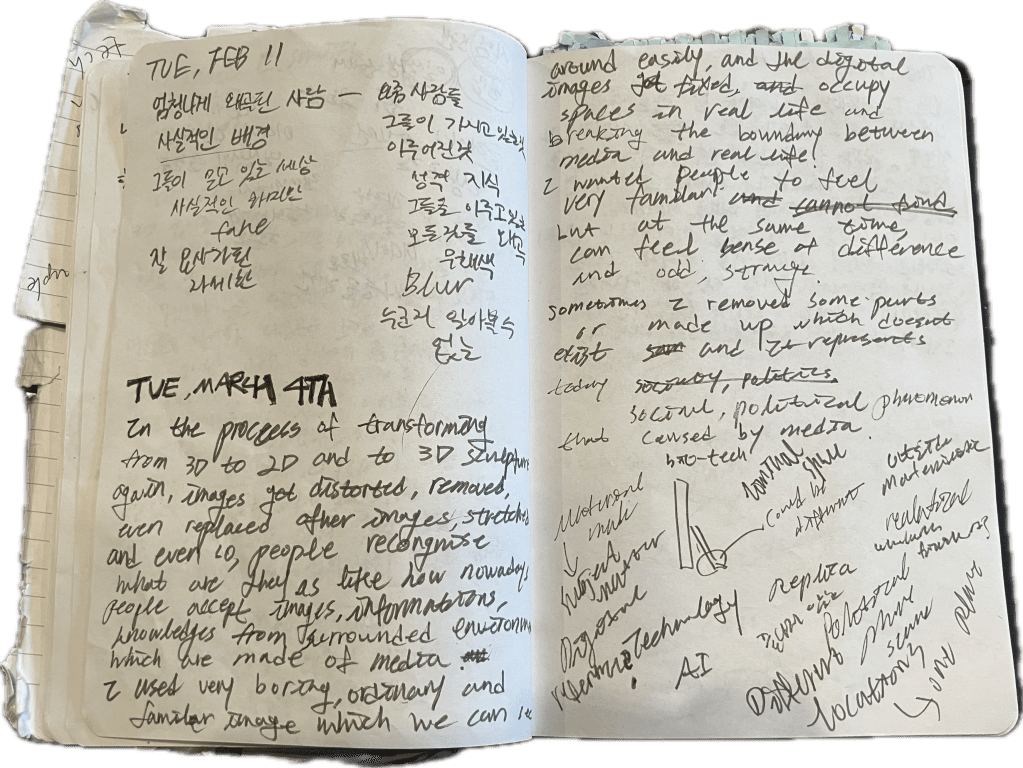 TUE, FEB 11
엄청나게 왜곡된 사람 — 요즘 사람들
그들이 가지고 있는 것
사실적인 배경
이루어진 것
그들이 믿고 있는 세상
성격 지식
사실적인 와지만
그들을 이루고 있는
fake
모든 것들 왜곡
잘 묘사가 된
무채색
자세한
Blur
누군지 알아볼 수
없는
TUE, MARCH 4TH
In the process of transforming
from 3D to 2D and to 3D sculpture
again, images got distorted, removed,
even replaced other images, stretched
and even so, people recognise
what are they as like how nowadays
people accept images, informations,
knowledges from surrounded environm
which are made of media.
I used very boring, ordinary and
familar image which we can see
around easily, and the digital
images got fixed, and occupy
spaces in real life and
breaking the boundary between
media and real life!
I wanted people to feel
very familar! and cannot find
but at the same time,
can feel sense of difference
and odd, strange.
sometimes I removed some parts
or made up which doesnt
exist and It represents
today society, politics.
social, political phenomenon
that caused by media.
bio-tech
Material
Could be
different
outside
relational
Replica
Technology
political
AI
Different
locations
one place